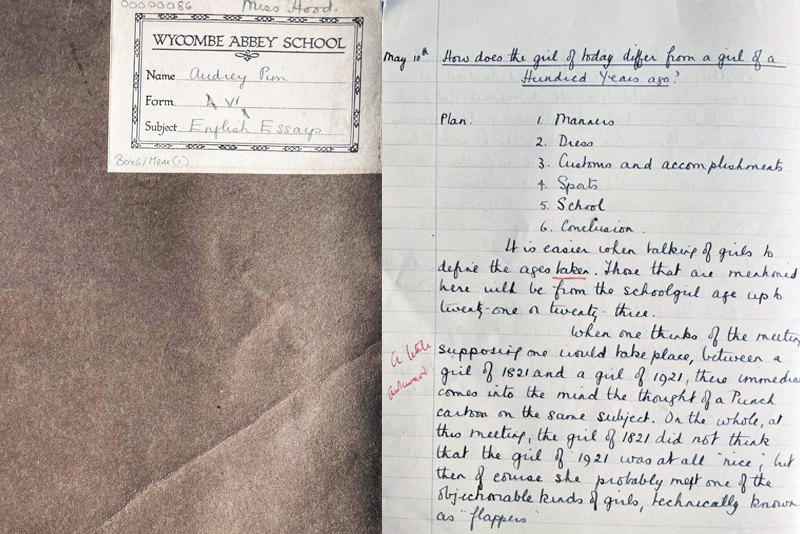 00000086 Miss Hood.
WYCOMBE ABBEY SCHOOL
Name Audrey Pim
Form VI
Subject English Essays
Box6/Mem(1)
May 10th How does the girl of today differ from a girl of a
Hundred Years ago?
Plan. 1. Manners
2. Dress
3. Customs and accomplishments
4. Sports
5. School
6. Conclusion.
It is easier when talking of girls to
define the ages taken. Those that are mentioned
here will be from the schoolgirl age up to
twenty-one or twenty-three.
When one thinks of the meeting
supposing one would take place, between a
A little
awkward
girl of 1821 and a girl of 1921, there immedia
comes into the mind the thought of a Punch
cartoon on the same subject. On the whole, at
this meeting, the girl of 1821 did not think
that the girl of 1921 was at all "nice", but
then of course she probably met one of the
objectionable kinds of girls, technically known
as "flappers"